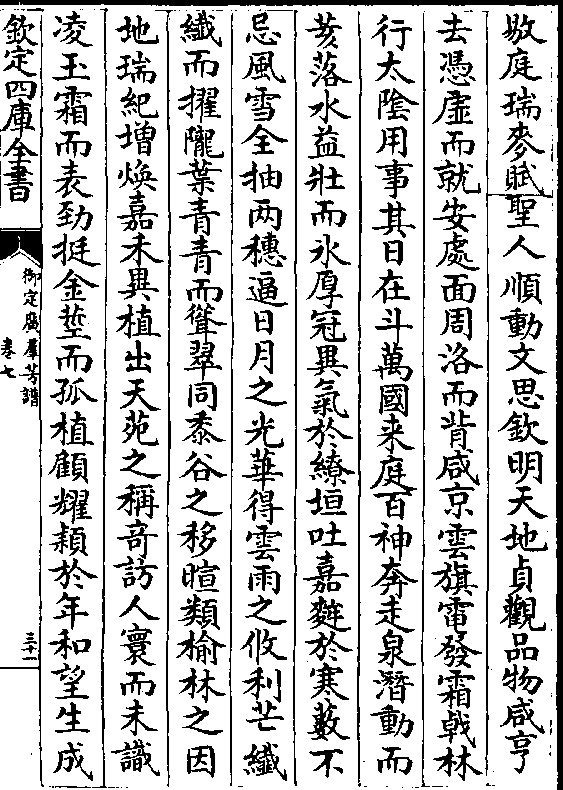 敭庭瑞麥賦聖人順動文思欽明天地貞觀品物咸亨
去憑虛而就安處面周洛而背咸京雲旗雷發霜戟林
行太陰用事其日在斗萬國来庭百神奔走泉潛動而
荄落水益壯而氷厚冠異氣於繚垣吐嘉䴬於寒藪不
忌風雪全抽两穗逼日月之光華得雲雨之攸利芒纎
纎而擢隴葉青青而聳翠同黍谷之移暄類榆林之因
地瑞紀増煥嘉禾異植出天苑之稱竒訪人寰而未識
凌玉霜而表勁挺金莖而孤植顧耀穎於年和望生成
欽定四庫全書
御定廣羣芳譜
卷七
三十一